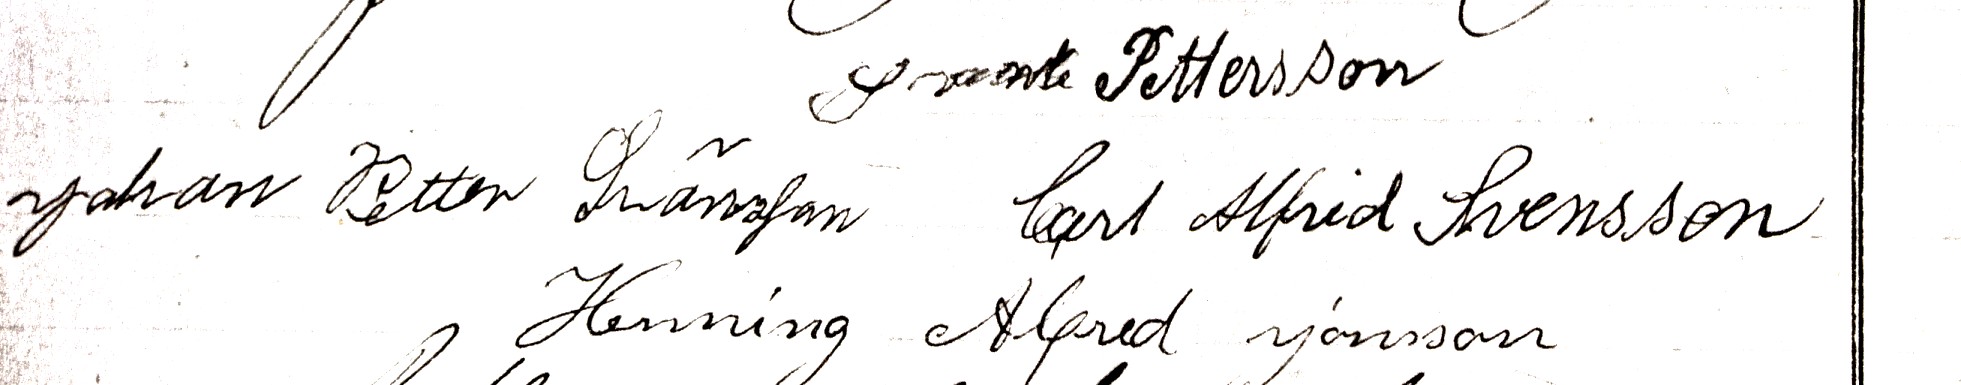 Svante Pettersson
Johan Petter Svänsson Carl Alfrid Svensson
Henning Alfred Jonsson